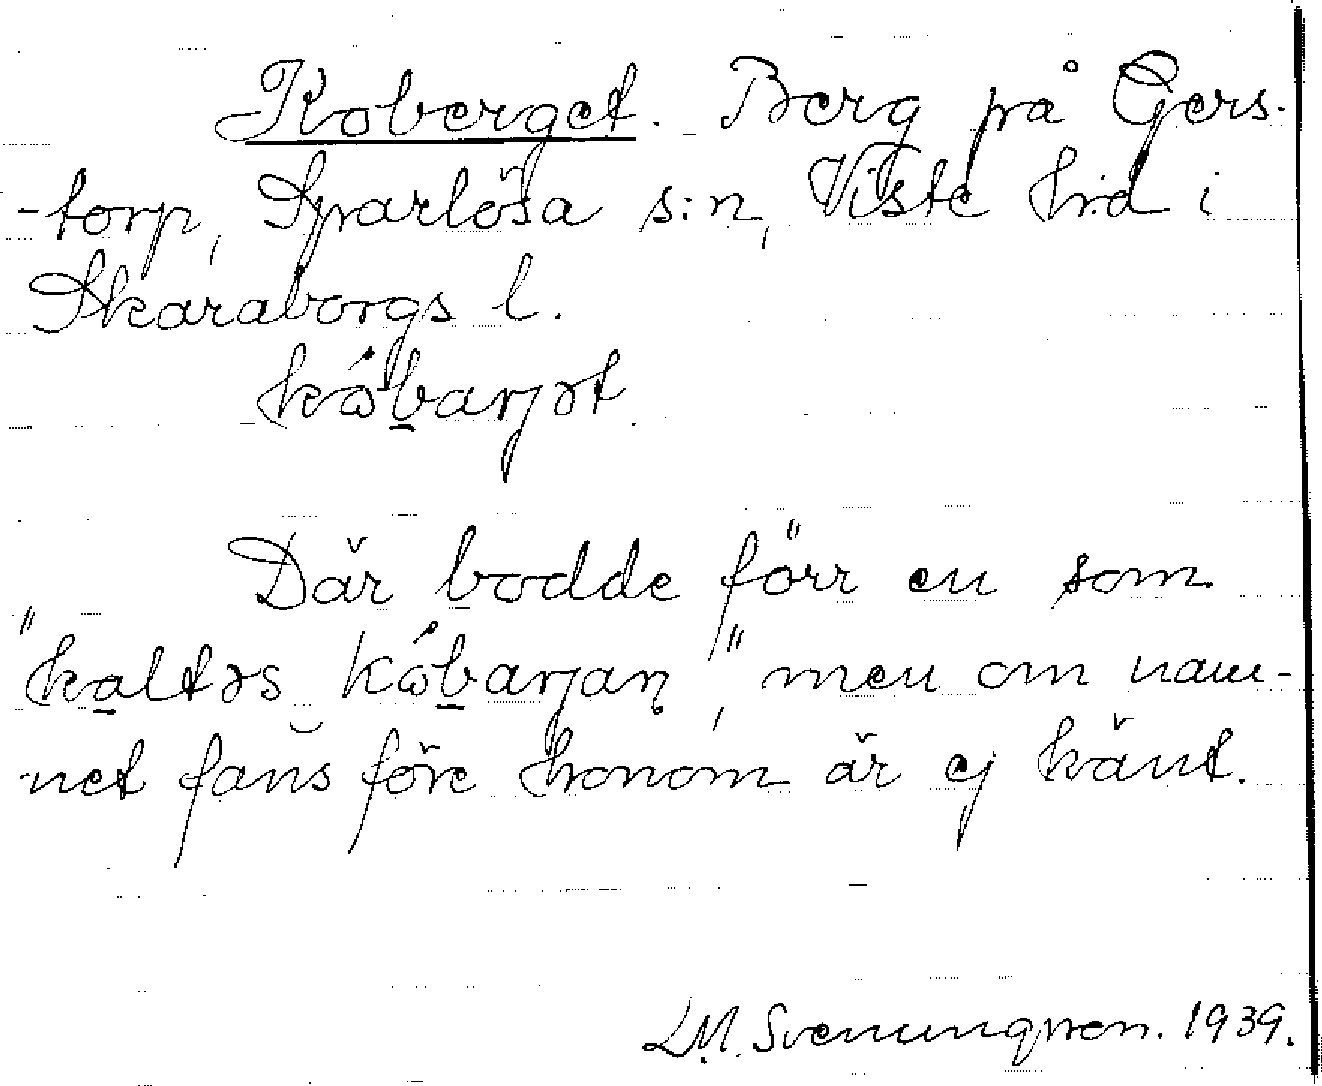 Koberget. Berg på Gers-
-torp, Sparlösa s:n, Viste h:d i
Skaraborgs l.
kớbarjət
Där bodde förr en som
"kaltəs Kớbarjan", men om nam-
net fans före honom är ej känt.
L.M. Svenungsson. 1939.